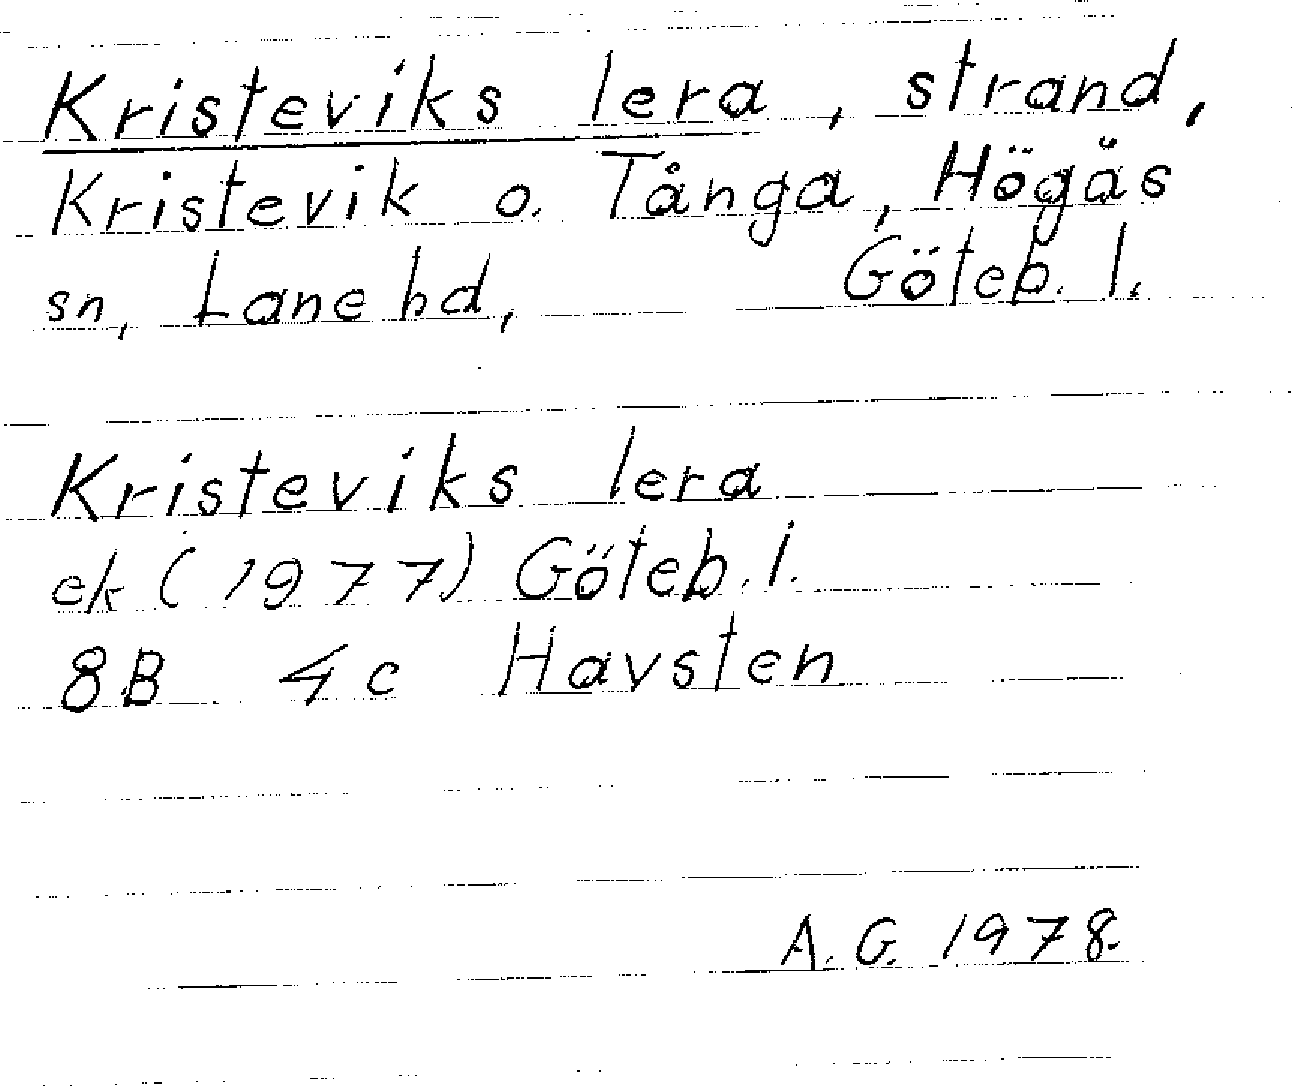 Kristeviks lera, strand,
Kristevik o. Tånga, Högäs
sn, Lane hd, Göteb. l.
Kristeviks lera
ek (1977) Göteb. l.
8B 4c Havsten
A. G. 1978.